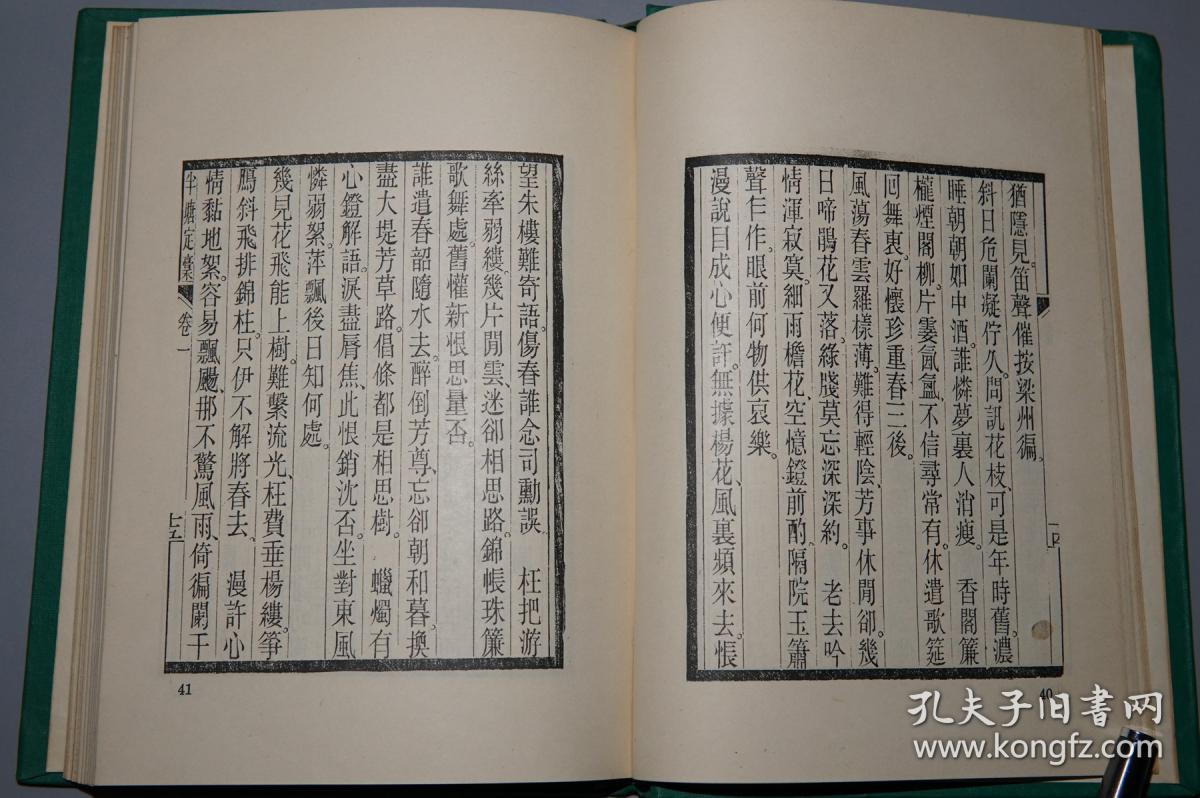 猶隱見。笛聲催按梁州徧。
斜日危闌凝佇久。問訊花枝、可是年時舊。濃
睡朝朝如中酒。誰憐夢裏人消瘦。　香閣簾
櫳煙閣柳。片霎氤氳、不信尋常有。休遣歌筵
回舞袖。好懷珍重春三後。
風蕩春雲羅樣薄。難得輕陰、芳事休閒卻。幾
日啼鵑花又落。綠牋莫忘深深約。　老去吟
情渾寂寞。細雨檐花、空憶鐙前酌。隔院玉簫
聲乍作。眼前何物供哀樂。
漫說目成心便許。無據楊花、風裏頻來去。悵
一四
40
望朱樓難寄語。傷春誰念司勳誤　枉把游
絲牽弱縷。幾片閒雲、迷卻相思路。錦帳珠簾
歌舞處。舊懽新恨思量否。
誰遣春韶隨水去。醉倒芳尊、忘卻朝和暮。換
盡大堤芳草路。倡條都是相思樹。　蠟燭有
心鐙解語。淚盡脣焦、此恨銷沈否。坐對東風
憐弱絮。萍飄後日知何處。
幾見花飛能上樹。難繫流光、枉費垂楊縷。箏
鴈斜飛排錦柱。只伊不解將春去。　漫許心
情黏地絮。容易飄颺、那不驚風雨。倚徧闌干
半塘定稾　卷一
十五
41
孔夫子旧书网
www.kongfz.com